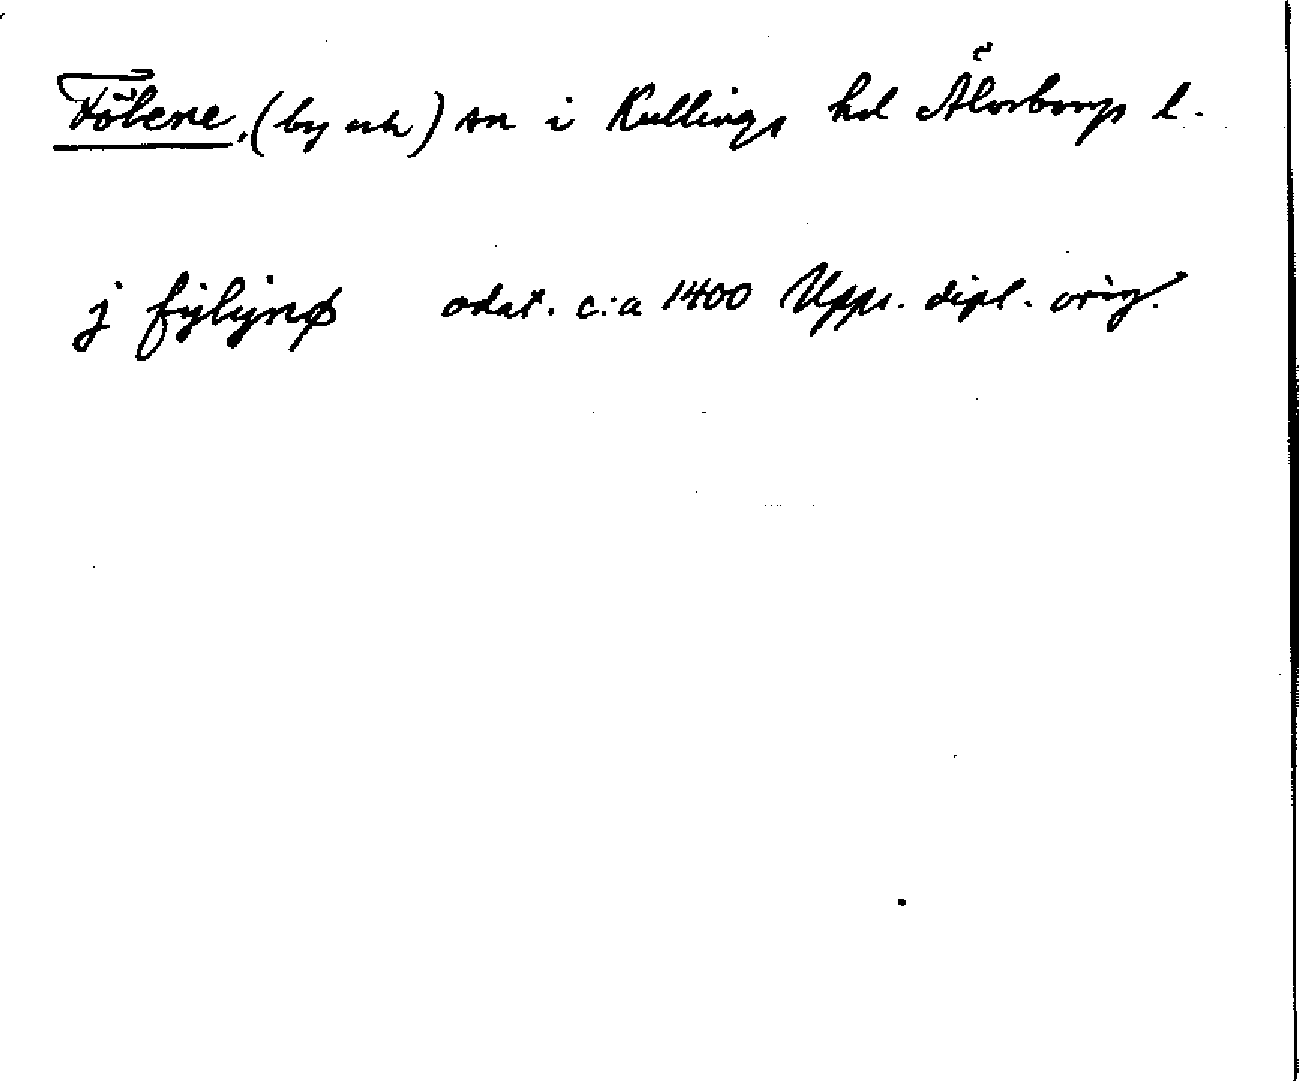 Fölene, (by och) sn i Kullings hd Älvsborgs l.
j fylynø odat. c:a 1400 Upps. dipl. orig.